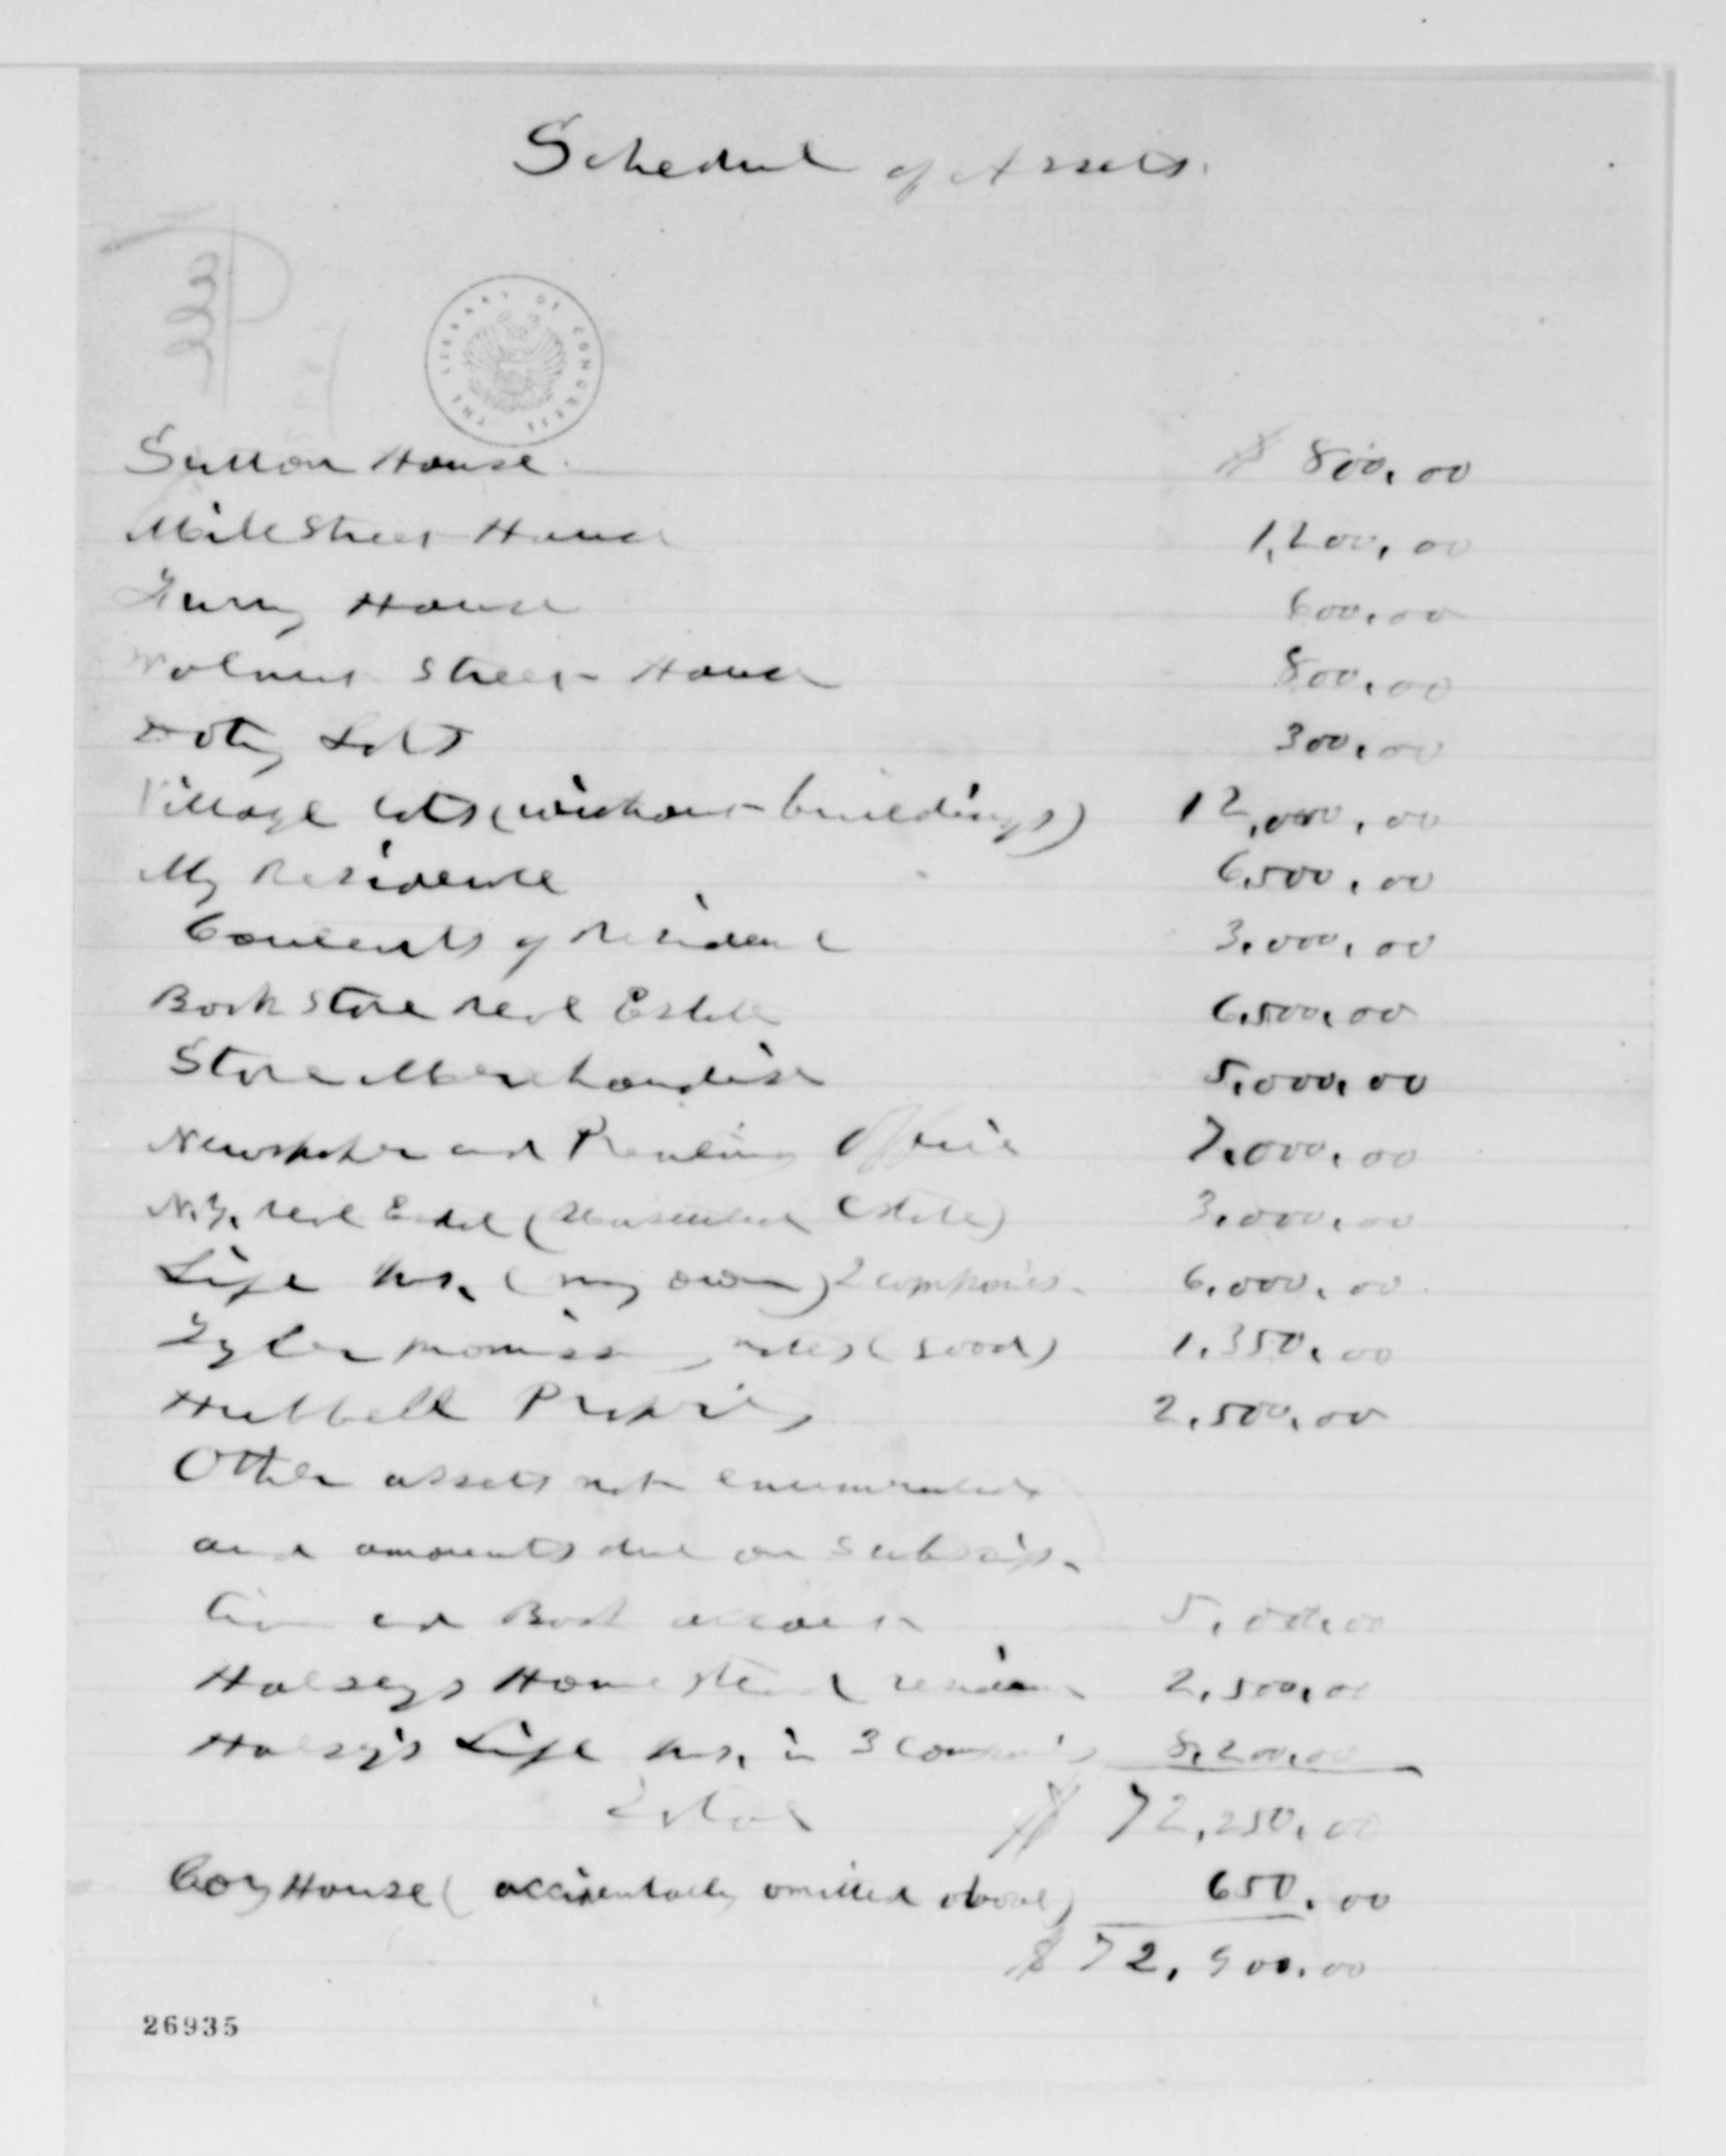 Schedul of Assets.
THE LIBRARY OF CONGRESS
Sutton House $ 800.00
Mill Street House 1,200.00
House 600.00
Walnut Street House 800.00
Doty Lots 300.00
Village lots (without buildings) 12,000.00
My Residence 6,500.00
Contents of Residence 3,000.00
Book Store Real Estate 6,500.00
Store Merchandise 5,000.00
Newspaper and Printing Office 7,000.00
N.Y. Real Estate ( Estate) 3,000.00
Life Ins. (my own) 2 companies 6,000.00
Tyler promissory notes (good) 1,350.00
Hubbell Property 2,500.00
Other assets not enumerated
and amounts due on subscrip-
tion and Book account 5,000.00
Halseys Homestead residence 2,500.00
Halsey's Life Ins. in 3 Companies 8,200.00
Total $ 72,250.00
Cory House (accidentally omitted above) 650.00
$ 72,900.00
26935